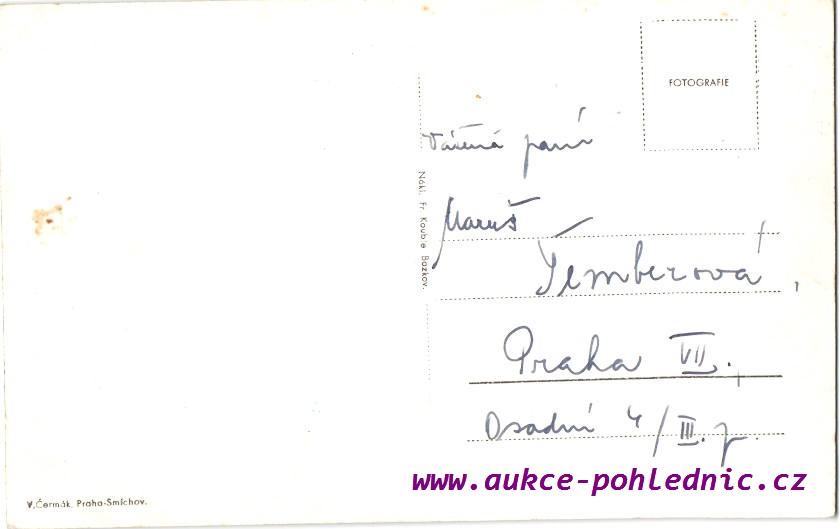 FOTOGRAFIE
Vážená paní
Maruš
Temberová,
Praha VII.
Osadní 4/III. p.
Nákl. Fr. Koub'e Bozkov.
V. Čermák, Praha-Smíchov.
www.aukce-pohlednic.cz